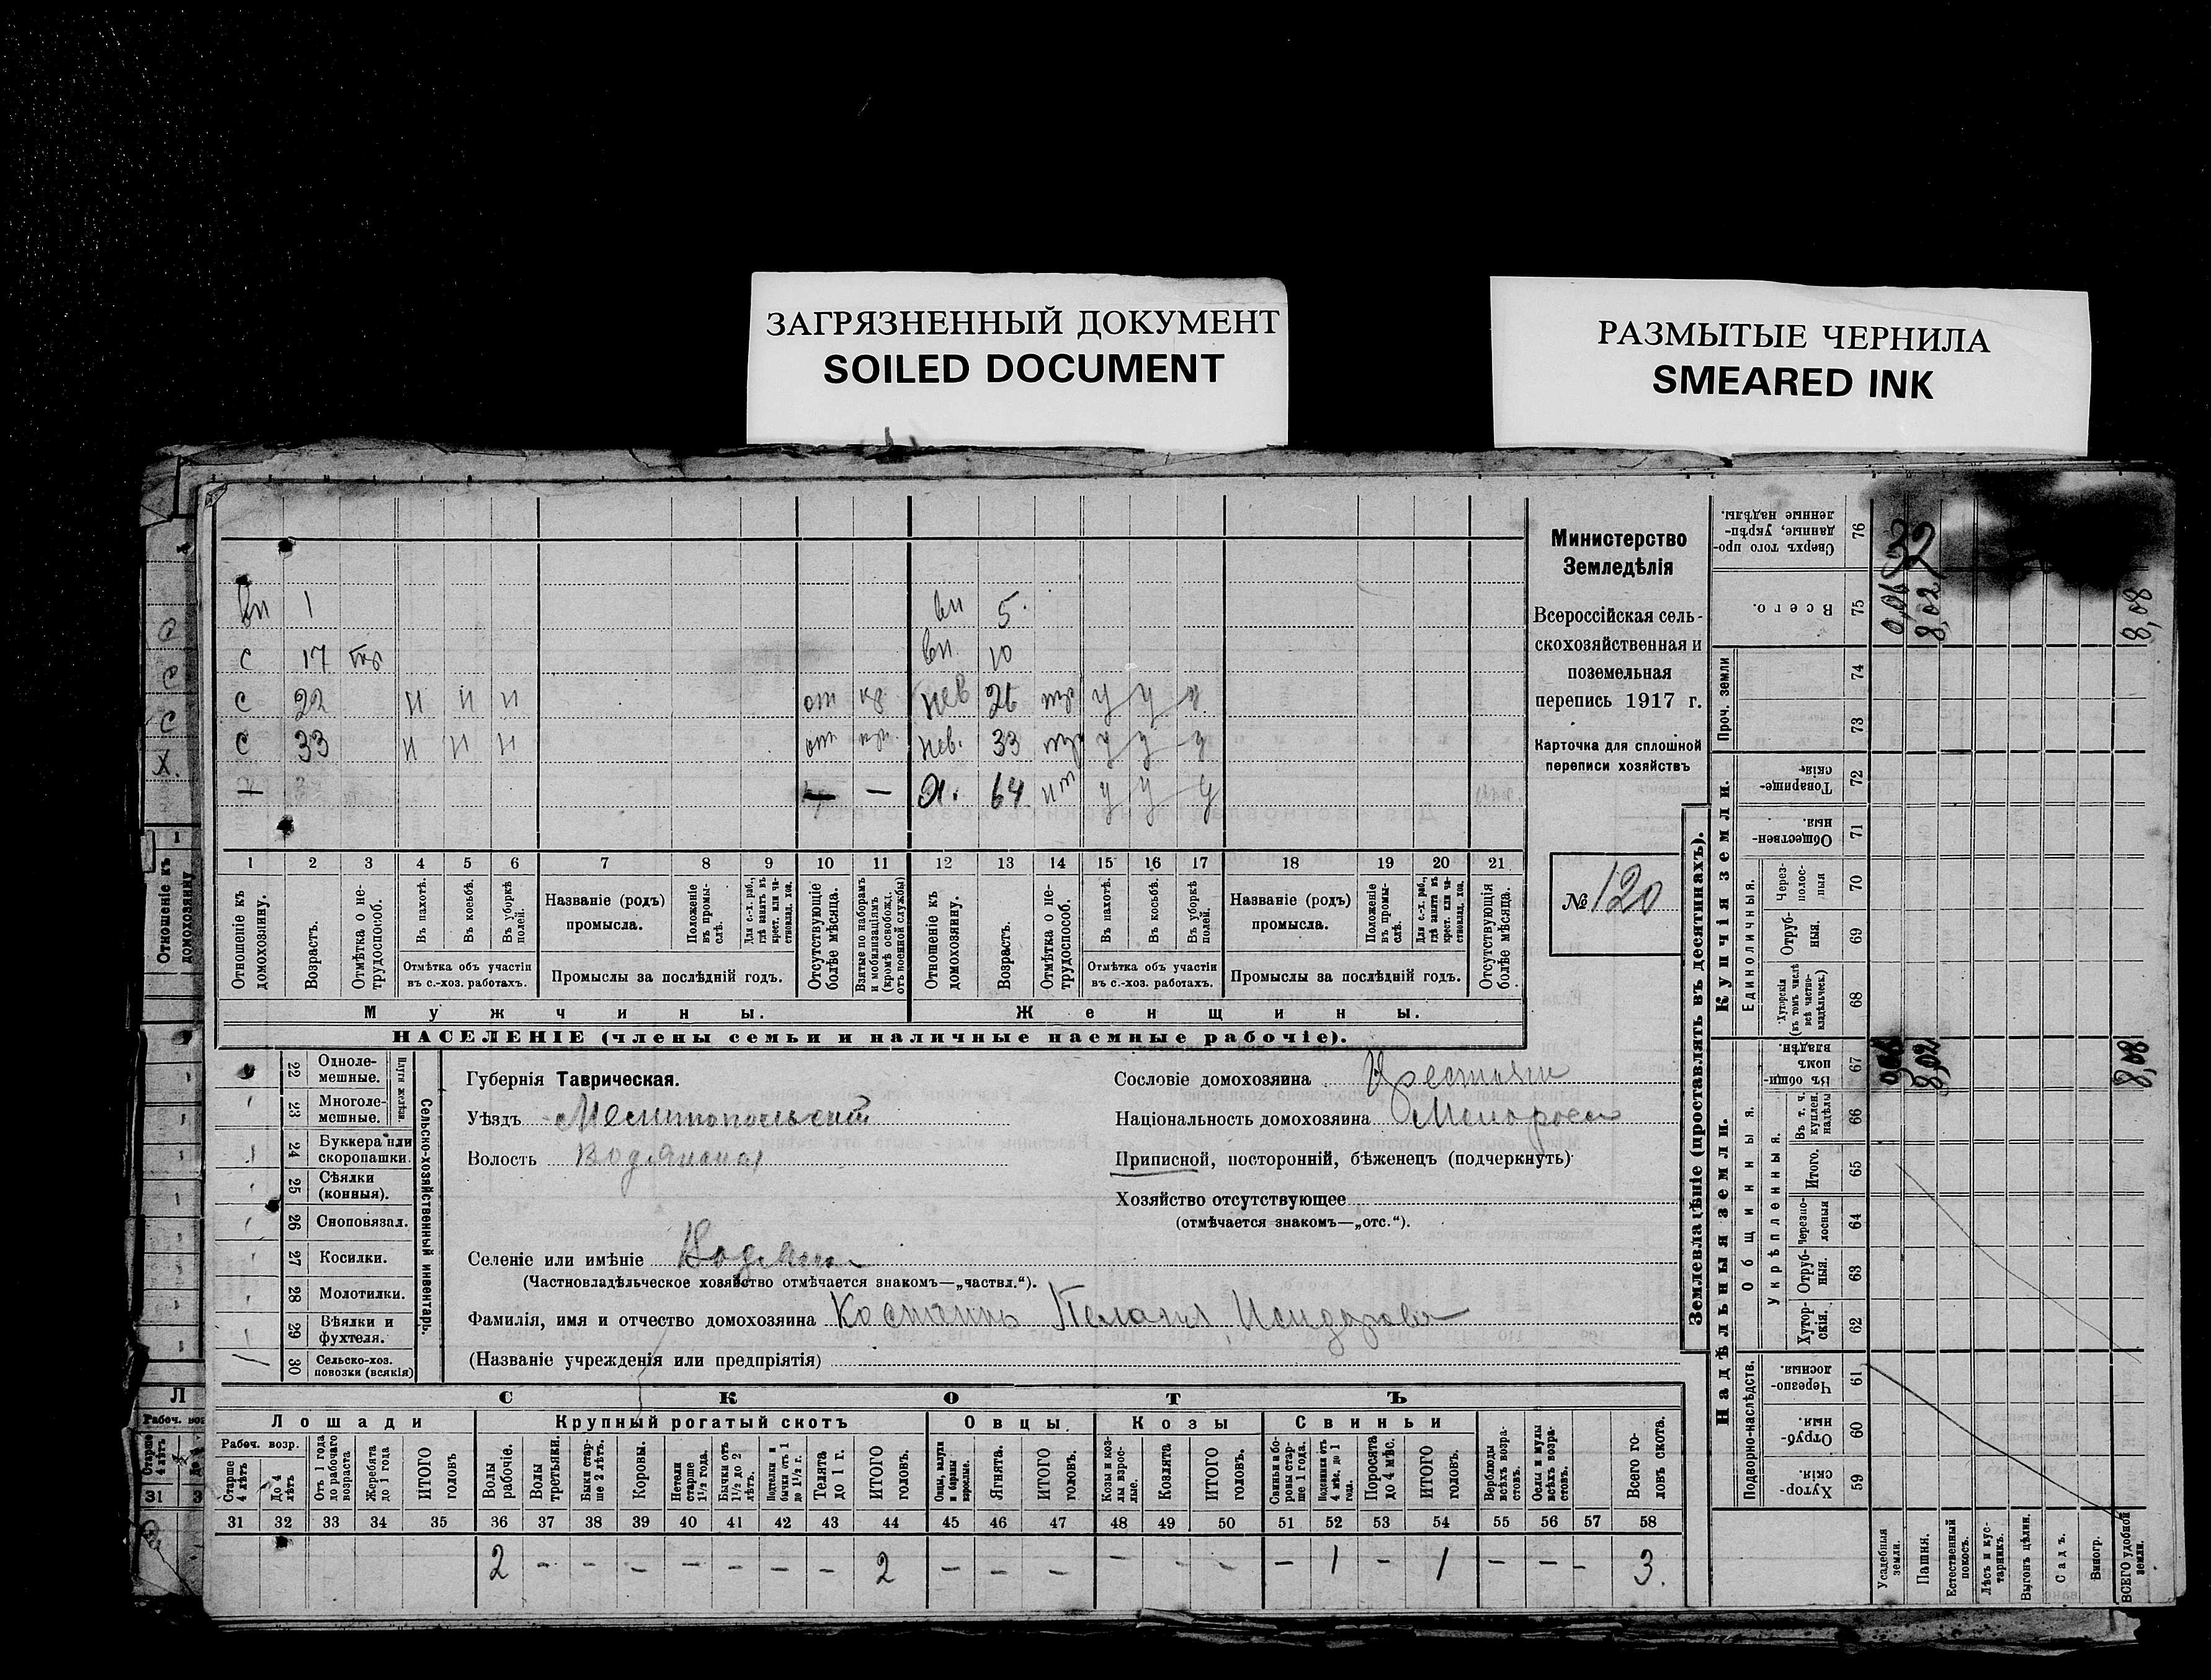 ЗАГРЯЗНЕННЫЙ ДОКУМЕНТ
SOILED DOCUMENT
РАЗМЫТЫЕ ЧЕРНИЛА
SMEARED INK
вн 1 вн 5
с 17 вн. 10
с 22 и и и от нев 26 у у у
с 33 и и и от нев. 33 у у у
— — — х. 64 у у у
1 2 3 4 5 6 7 8 9 10 11 12 13 14 15 16 17 18 19 20 21
Отношеніе къ домохозяину.
Возрастъ.
Отмѣтка о нетрудоспособ.
Въ пахотѣ.
Въ косьбѣ.
Въ уборкѣ полей.
Отмѣтка объ участіи въ с.-хоз. работахъ.
Названіе (родъ) промысла.
Положеніе въ промыслѣ.
Для с.-х. раб., гдѣ занятъ въ крест. или частновлад. хоз.
Промыслы за послѣдній годъ.
Отсутствующіе болѣе мѣсяца.
Взятые по наборамъ и мобилизаціямъ (кромѣ освобожд. отъ военной службы)
Отношеніе къ домохозяину.
Возрастъ.
Отмѣтка о нетрудоспособ.
Въ пахотѣ.
Въ косьбѣ.
Въ уборкѣ полей.
Отмѣтка объ участіи въ с.-хоз. работахъ.
Названіе (родъ) промысла.
Положеніе въ промыслѣ.
Для с.-х. раб., гдѣ занята въ крест. или частновлад. хоз.
Промыслы за послѣдній годъ.
Отсутствующія болѣе мѣсяца.
Мужчины. Женщины.
НАСЕЛЕНІЕ (члены семьи и наличные наемные рабочіе).
Министерство
Земледѣлія
Всероссійская сель-
скохозяйственная и
поземельная
перепись 1917 г.
Карточка для сплошной
переписи хозяйствъ
№ 120
Сельско-хозяйственный инвентарь.
Плуги желѣзн.
22 Однолемешные.
23 Многолемешные.
24 Буккера или скоропашки.
25 Сѣялки (конныя).
26 Сноповязал.
27 Косилки.
28 Молотилки.
29 Вѣялки и фухтеля.
30 Сельско-хоз. повозки (всякія)
Губернія Таврическая.
Уѣздъ Мелитопольскій
Волость Водянская
Селеніе или имѣніе
(Частновладѣльческое хозяйство отмѣчается знакомъ—„частвл.“).
Фамилія, имя и отчество домохозяина Пелагия Исидоровн
(Названіе учрежденія или предпріятія)
Сословіе домохозяина
Національность домохозяина Малоросс
Приписной, посторонній, бѣженецъ (подчеркнуть)
Хозяйство отсутствующее
(отмѣчается знакомъ—„отс.“).
СКОТЪ
Лошади Крупный рогатый скотъ Овцы Козы Свиньи
Рабоч. возр.
Старше 4 лѣтъ
До 4 лѣтъ
Отъ 1 года до рабочаго возраста
Жеребята до 1 года
ИТОГО головъ
Волы рабочіе.
Волы третьяки.
Быки старше 2 лѣтъ.
Коровы.
Нетели старше 1½ года.
Бычки отъ 1½ до 2 лѣтъ.
Подтелки и бычки отъ 1 до 1½ г.
Телята до 1 г.
ИТОГО головъ.
Овцы, валухи и бараны взрослые.
Ягнята.
ИТОГО головъ.
Козы и козлы взрослые.
Козлята
ИТОГО головъ.
Свиньи и боровы старше 1 года.
Подсвинки отъ 4 мѣс. до 1 года.
Поросята до 4 мѣс.
ИТОГО головъ.
Верблюды всѣхъ возрастовъ.
Ослы и мулы всѣхъ возрастовъ.
Всего головъ скота.
31 32 33 34 35 36 37 38 39 40 41 42 43 44 45 46 47 48 49 50 51 52 53 54 55 56 57 58
2 - - - - - - - 2 - - - - - - - 1 - 1 - - - 3.
Землевладѣніе (проставлять въ десятинахъ).
Надѣльныя земли. Купчія земли.
Подворно-наслѣдств.
Общинныя.
Укрѣпленныя.
Единоличныя.
Проч. земли
59 Хуторскія.
60 Отрубныя.
61 Черезполосныя.
62 Хуторскія.
63 Отрубныя.
64 Черезполосныя
65 Итого.
66 Въ т. ч. куплен. надѣлы
67 Въ общинномъ владѣн.
68 Хуторскія (въ томъ числѣ всѣ частновладѣльческ.)
69 Отрубныя.
70 Черезполосныя
71 Общественныя
72 Товарищескія.
73
74
75 Всего.
76 Сверхъ того проданные, укрѣпленные надѣлы.
Усадебныя земли. 0,06 0,06
Пашня. 8,02 8,02
Естественный покосъ.
Лѣсъ и кустарникъ.
Выгонъ цѣлин.
Садъ.
Виногр.
ВСЕГО удобной земли. 8,08 8,08
32
Отношеніе къ домохозяину
1
с
с
Х.
Л
Рабоч. воз
Старше 4 лѣтъ
31